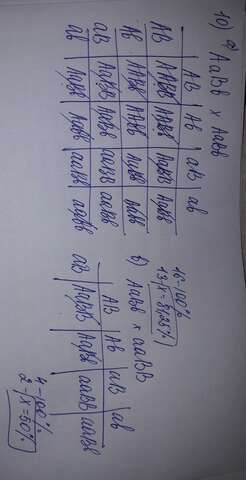 10) a) AaBb x AaBb
AB Ab aB ab
AB AABB AABb AaBB AaBb
Ab AABb AAbb AaBb Aabb
aB AaBB AaBb aaBB aaBb
ab AaBb Aabb aaBb aabb
16-100%
13-x=81,25%
b) AaBb x aaBB
AB Ab aB ab
aB AaBB AaBb aaBB aaBb
4-100%
2-x=50%